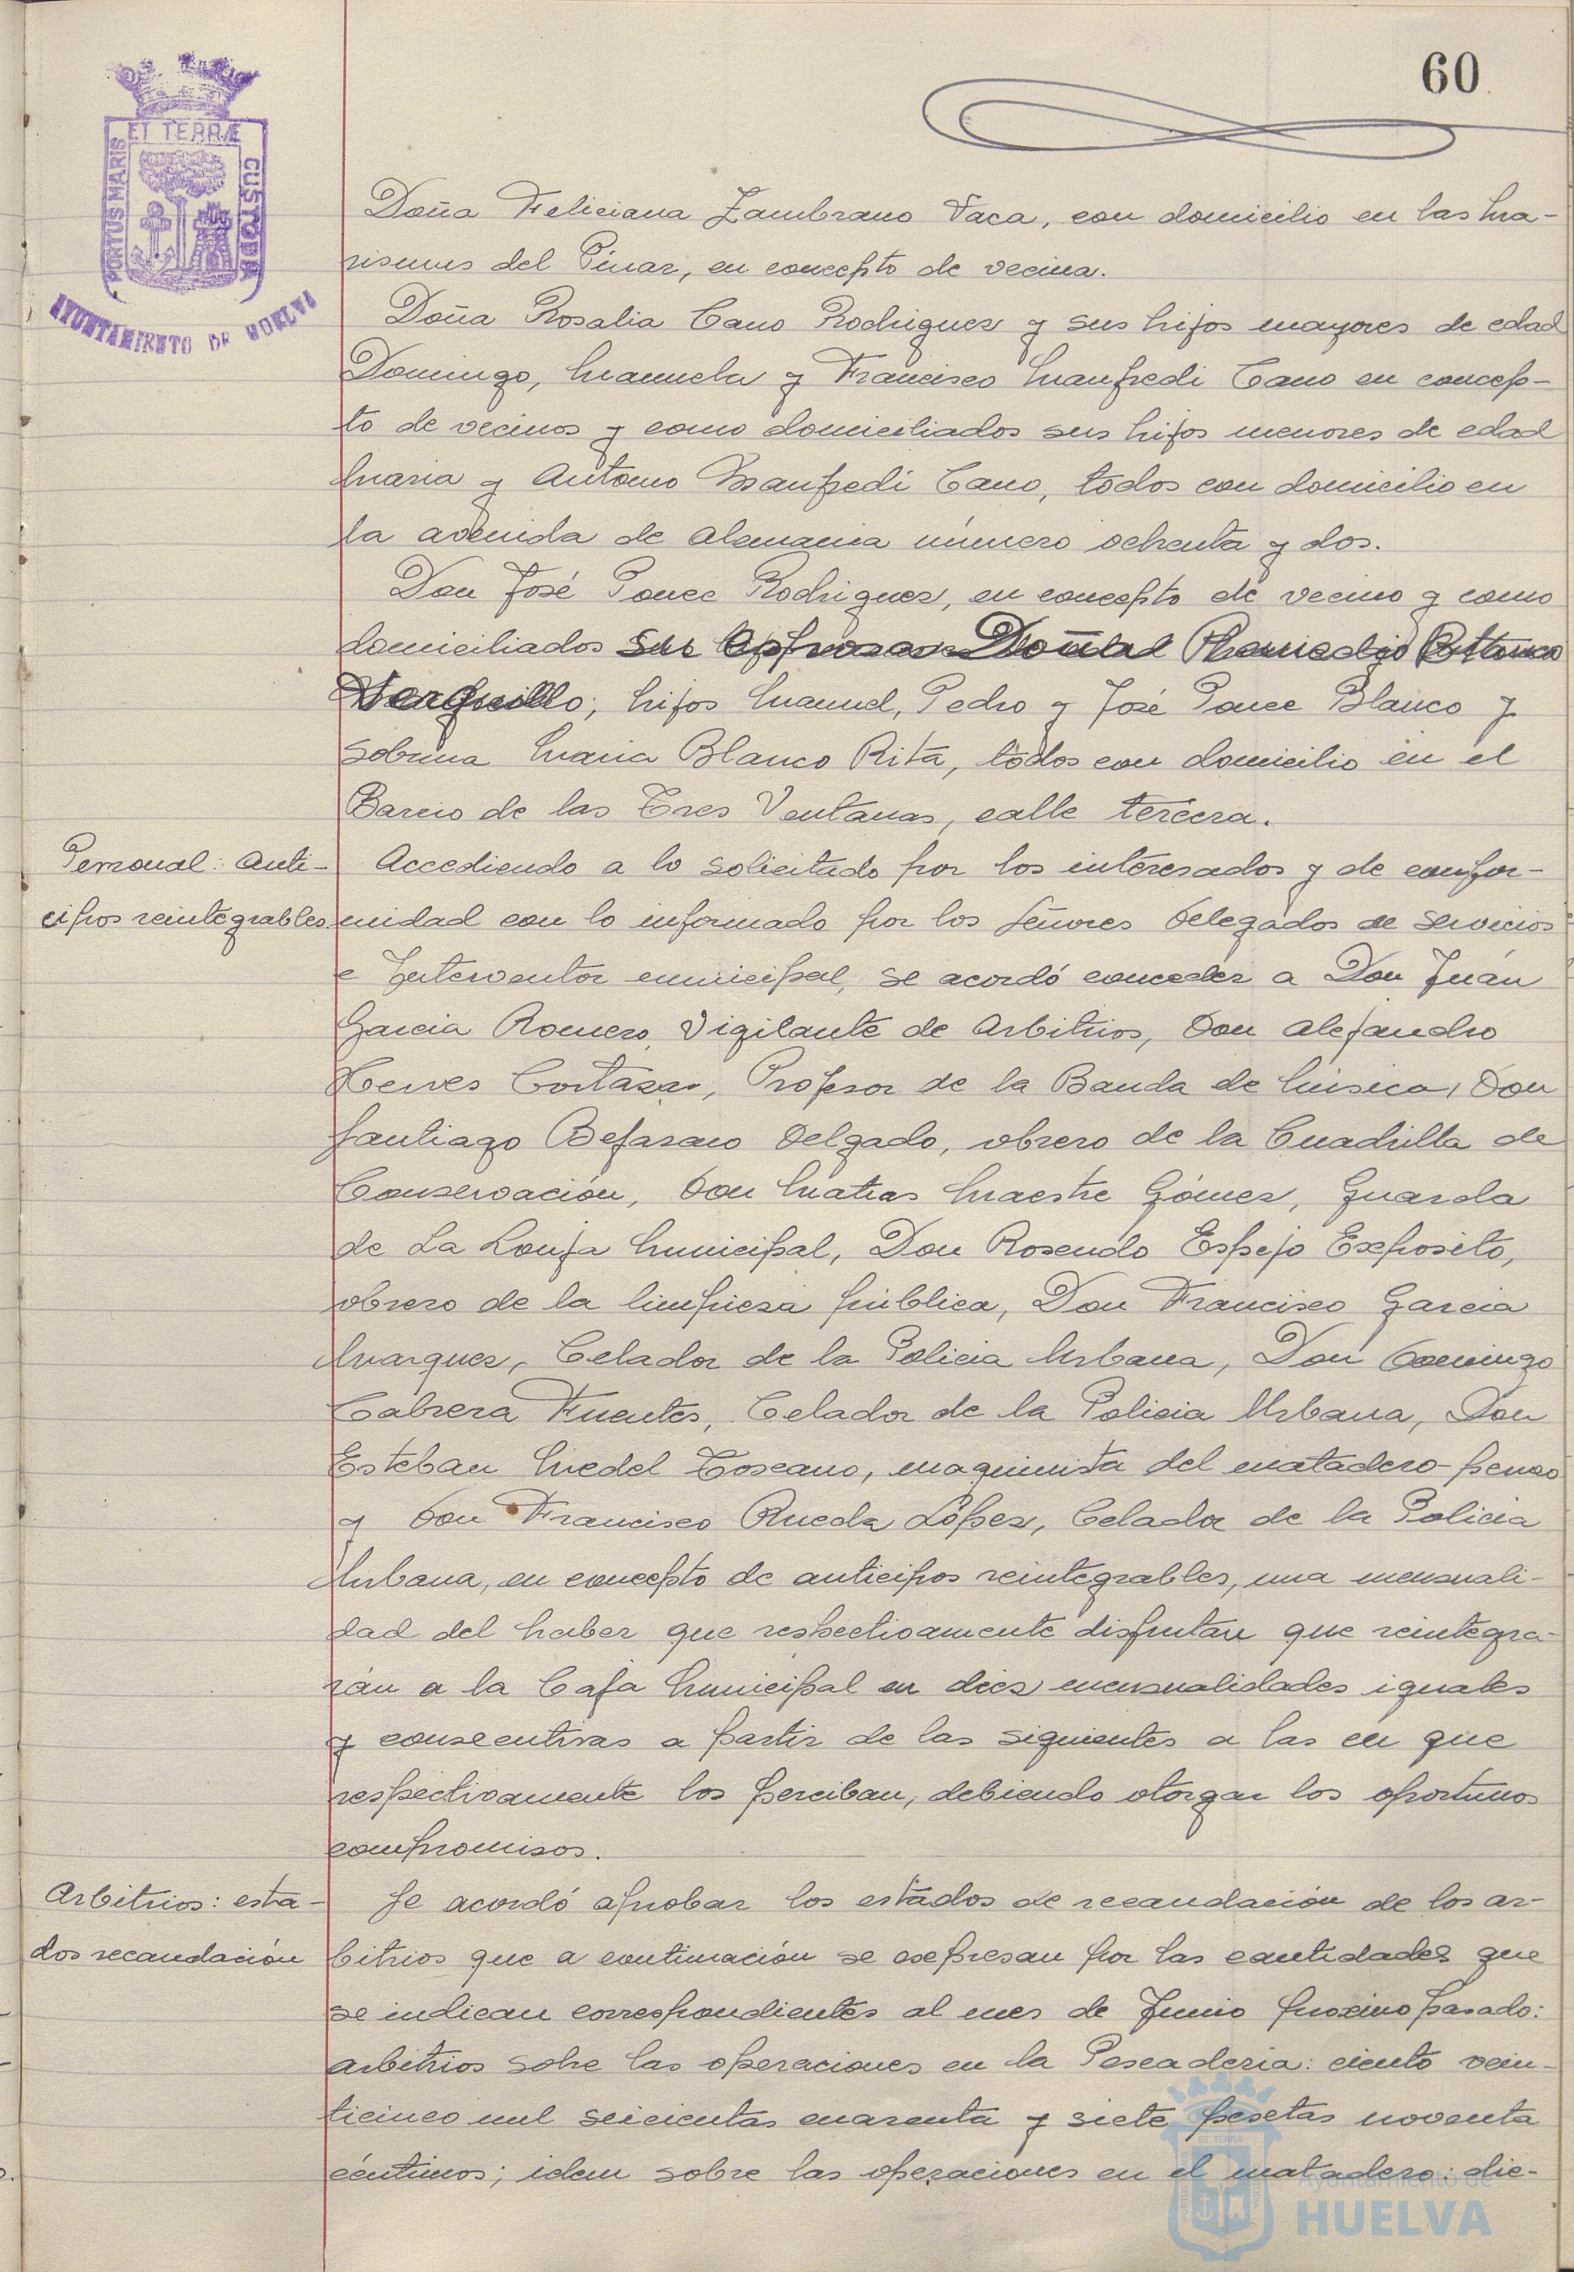 60
ET TERRÆ
PORTUS MARIS
CUSTODIA
AYUNTAMIENTO DE HUELVA
Doña Feliciana Zambrano Vaca, con domicilio en las Ma-
rismas del Pinar, en concepto de vecina.
Doña Rosalia Cano Rodriguez y sus hijos mayores de edad
Domingo, Manuela y Francisco Manfredi Cano en concep-
to de vecinos y como domiciliados sus hijos menores de edad
Maria y Antonio Manfredi Cano, todos con domicilio en
la avenida de Alemania número ochenta y dos.
Don José Ponce Rodriguez, en concepto de vecino y como
domiciliados su esposa Doña Remedio Blanco
; hijos Manuel, Pedro y José Ponce Blanco y
sobrina Maria Blanco Rita, todos con domicilio en el
Barrio de las Tres Ventanas, calle tercera.
Personal: Anti-
cipos reintegrables
Accediendo a lo solicitado por los interesados y de confor-
midad con lo informado por los Señores Delegados de Servicios
e Interventor municipal, se acordó conceder a Don Juán
Garcia Romero, Vigilante de Arbitrios, Don Alejandro
Herves Cortazar, Profesor de la Banda de Música, Don
Santiago Bejarano Delgado, obrero de la Cuadrilla de
Conservación, Don Matias Maestre Gómez, Guarda
de La Lonja Municipal, Don Rosendo Espejo Exposito,
obrero de la limpieza pública, Don Francisco Garcia
Marquez, Celador de la Policia Urbana, Don Domingo
Cabrera Fuentes, Celador de la Policia Urbana, Don
Esteban Miedel Toscano, maquinista del matadero
y Don Francisco Rueda López, Celador de la Policia
Urbana, en concepto de anticipos reintegrables, una mensuali-
dad del haber que respectivamente disfrutan que reintegra-
rán a la Caja Municipal en diez mensualidades iguales
y consecutivas a partir de las siguientes a las en que
respectivamente los perciban, debiendo otorgar los oportunos
compromisos.
Arbitrios: esta-
dos recaudación
Se acordó aprobar los estados de recaudación de los ar-
bitrios que a continuación se expresan por las cantidades que
se indican correspondientes al mes de Junio proximo pasado:
arbitrios sobre las operaciones en la Pescaderia: ciento vein-
ticinco mil seicientas cuarenta y siete pesetas noventa
céntimos; idem sobre las operaciones en el matadero: die-
Ayuntamiento de
HUELVA